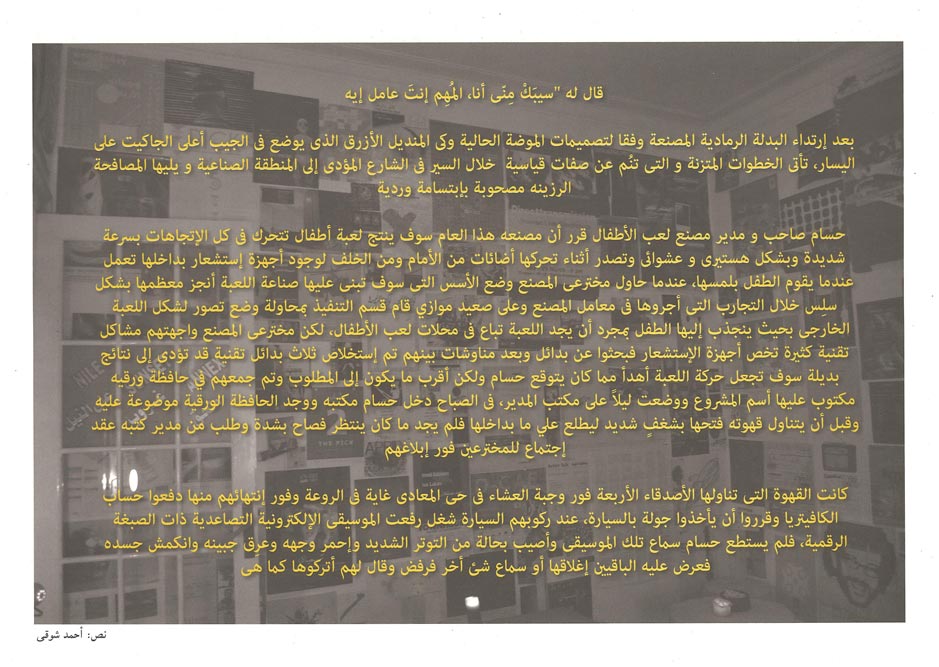 قال له "سيبَكْ مِنّى أنا، المُهِم إنتَ عامل إيه
بعد إرتداء البدلة الرمادية المصنعة وفقا لتصميمات الموضة الحالية وكى المنديل الأزرق الذى يوضع فى الجيب أعلى الجاكيت على
اليسار، تأتى الخطوات المتزنة و التى تنُم عن صفات قياسية خلال السير فى الشارع المؤدى إلى المنطقة الصناعية و يليها المصافحة
الرزينه مصحوبة بإبتسامة وردية
حسام صاحب و مدير مصنع لعب الأطفال قرر أن مصنعه هذا العام سوف ينتج لعبة أطفال تتحرك فى كل الإتجاهات بسرعة
شديدة وبشكل هستيرى و عشوائى وتصدر أثناء تحركها أضائات من الأمام ومن الخلف لوجود أجهزة إستشعار بداخلها تعمل
عندما يقوم الطفل بلمسها، عندما حاول مخترعى المصنع وضع الأسس التى سوف تبنى عليها صناعة اللعبة أنجز معظمها بشكل
سلِس خلال التجارب التى أجروها فى معامل المصنع وعلى صعيد موازي قام قسم التنفيذ بمحاولة وضع تصور لشكل اللعبة
الخارجى بحيث ينجذب إليها الطفل بمجرد أن يجد اللعبة تباع فى محلات لعب الأطفال، لكن مخترعى المصنع واجهتهم مشاكل
تقنية كثيرة تخص أجهزة الإستشعار فبحثوا عن بدائل وبعد مناوشات بينهم تم إستخلاص ثلاث بدائل تقنية قد تؤدى إلى نتائج
بديلة سوف تجعل حركة اللعبة أهدأ مما كان يتوقع حسام ولكن أقرب ما يكون إلى المطلوب وتم جمعهم في حافظة ورقيه
مكتوب عليها أسم المشروع ووضعت ليلاً على مكتب المدير، فى الصباح دخل حسام مكتبه ووجد الحافظة الورقية موضوعة عليه
وقبل أن يتناول قهوته فتحها بشغفٍ شديد ليطلع علي ما بداخلها فلم يجد ما كان ينتظر فصاح بشدة وطلب من مدير كتبه عقد
إجتماع للمخترعين فور إبلاغهم
كانت القهوة التى تناولها الأصدقاء الأربعة فور وجبة العشاء فى حى المعادى غاية فى الروعة وفور إنتهائهم منها دفعوا حساب
الكافيتريا وقرروا أن يأخذوا جولة بالسيارة، عند ركوبهم السيارة شغل رفعت الموسيقى الإلكترونية التصاعدية ذات الصبغة
الرقمية، فلم يستطع حسام سماع تلك الموسيقى وأصيب بحالة من التوتر الشديد وإحمر وجهه وعرق جبينه وانكمش جسده
فعرض عليه الباقيين إغلاقها أو سماع شئ أخر فرفض وقال لهم أتركوها كما هى
نص: أحمد شوقى